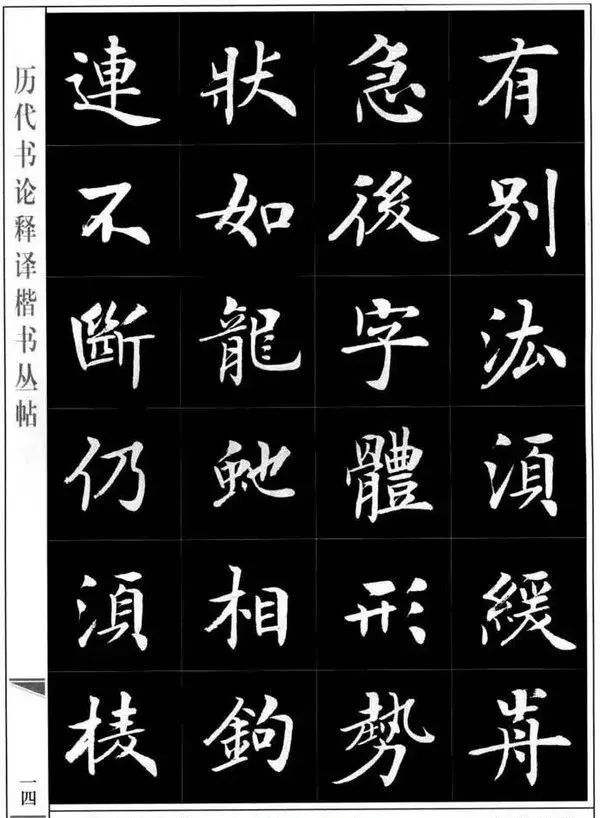 有別法湏緩歬
急後字體形勢
狀如龍虵相鉤
連不斷仍湏棱
历代书论释译楷书丛帖
一四